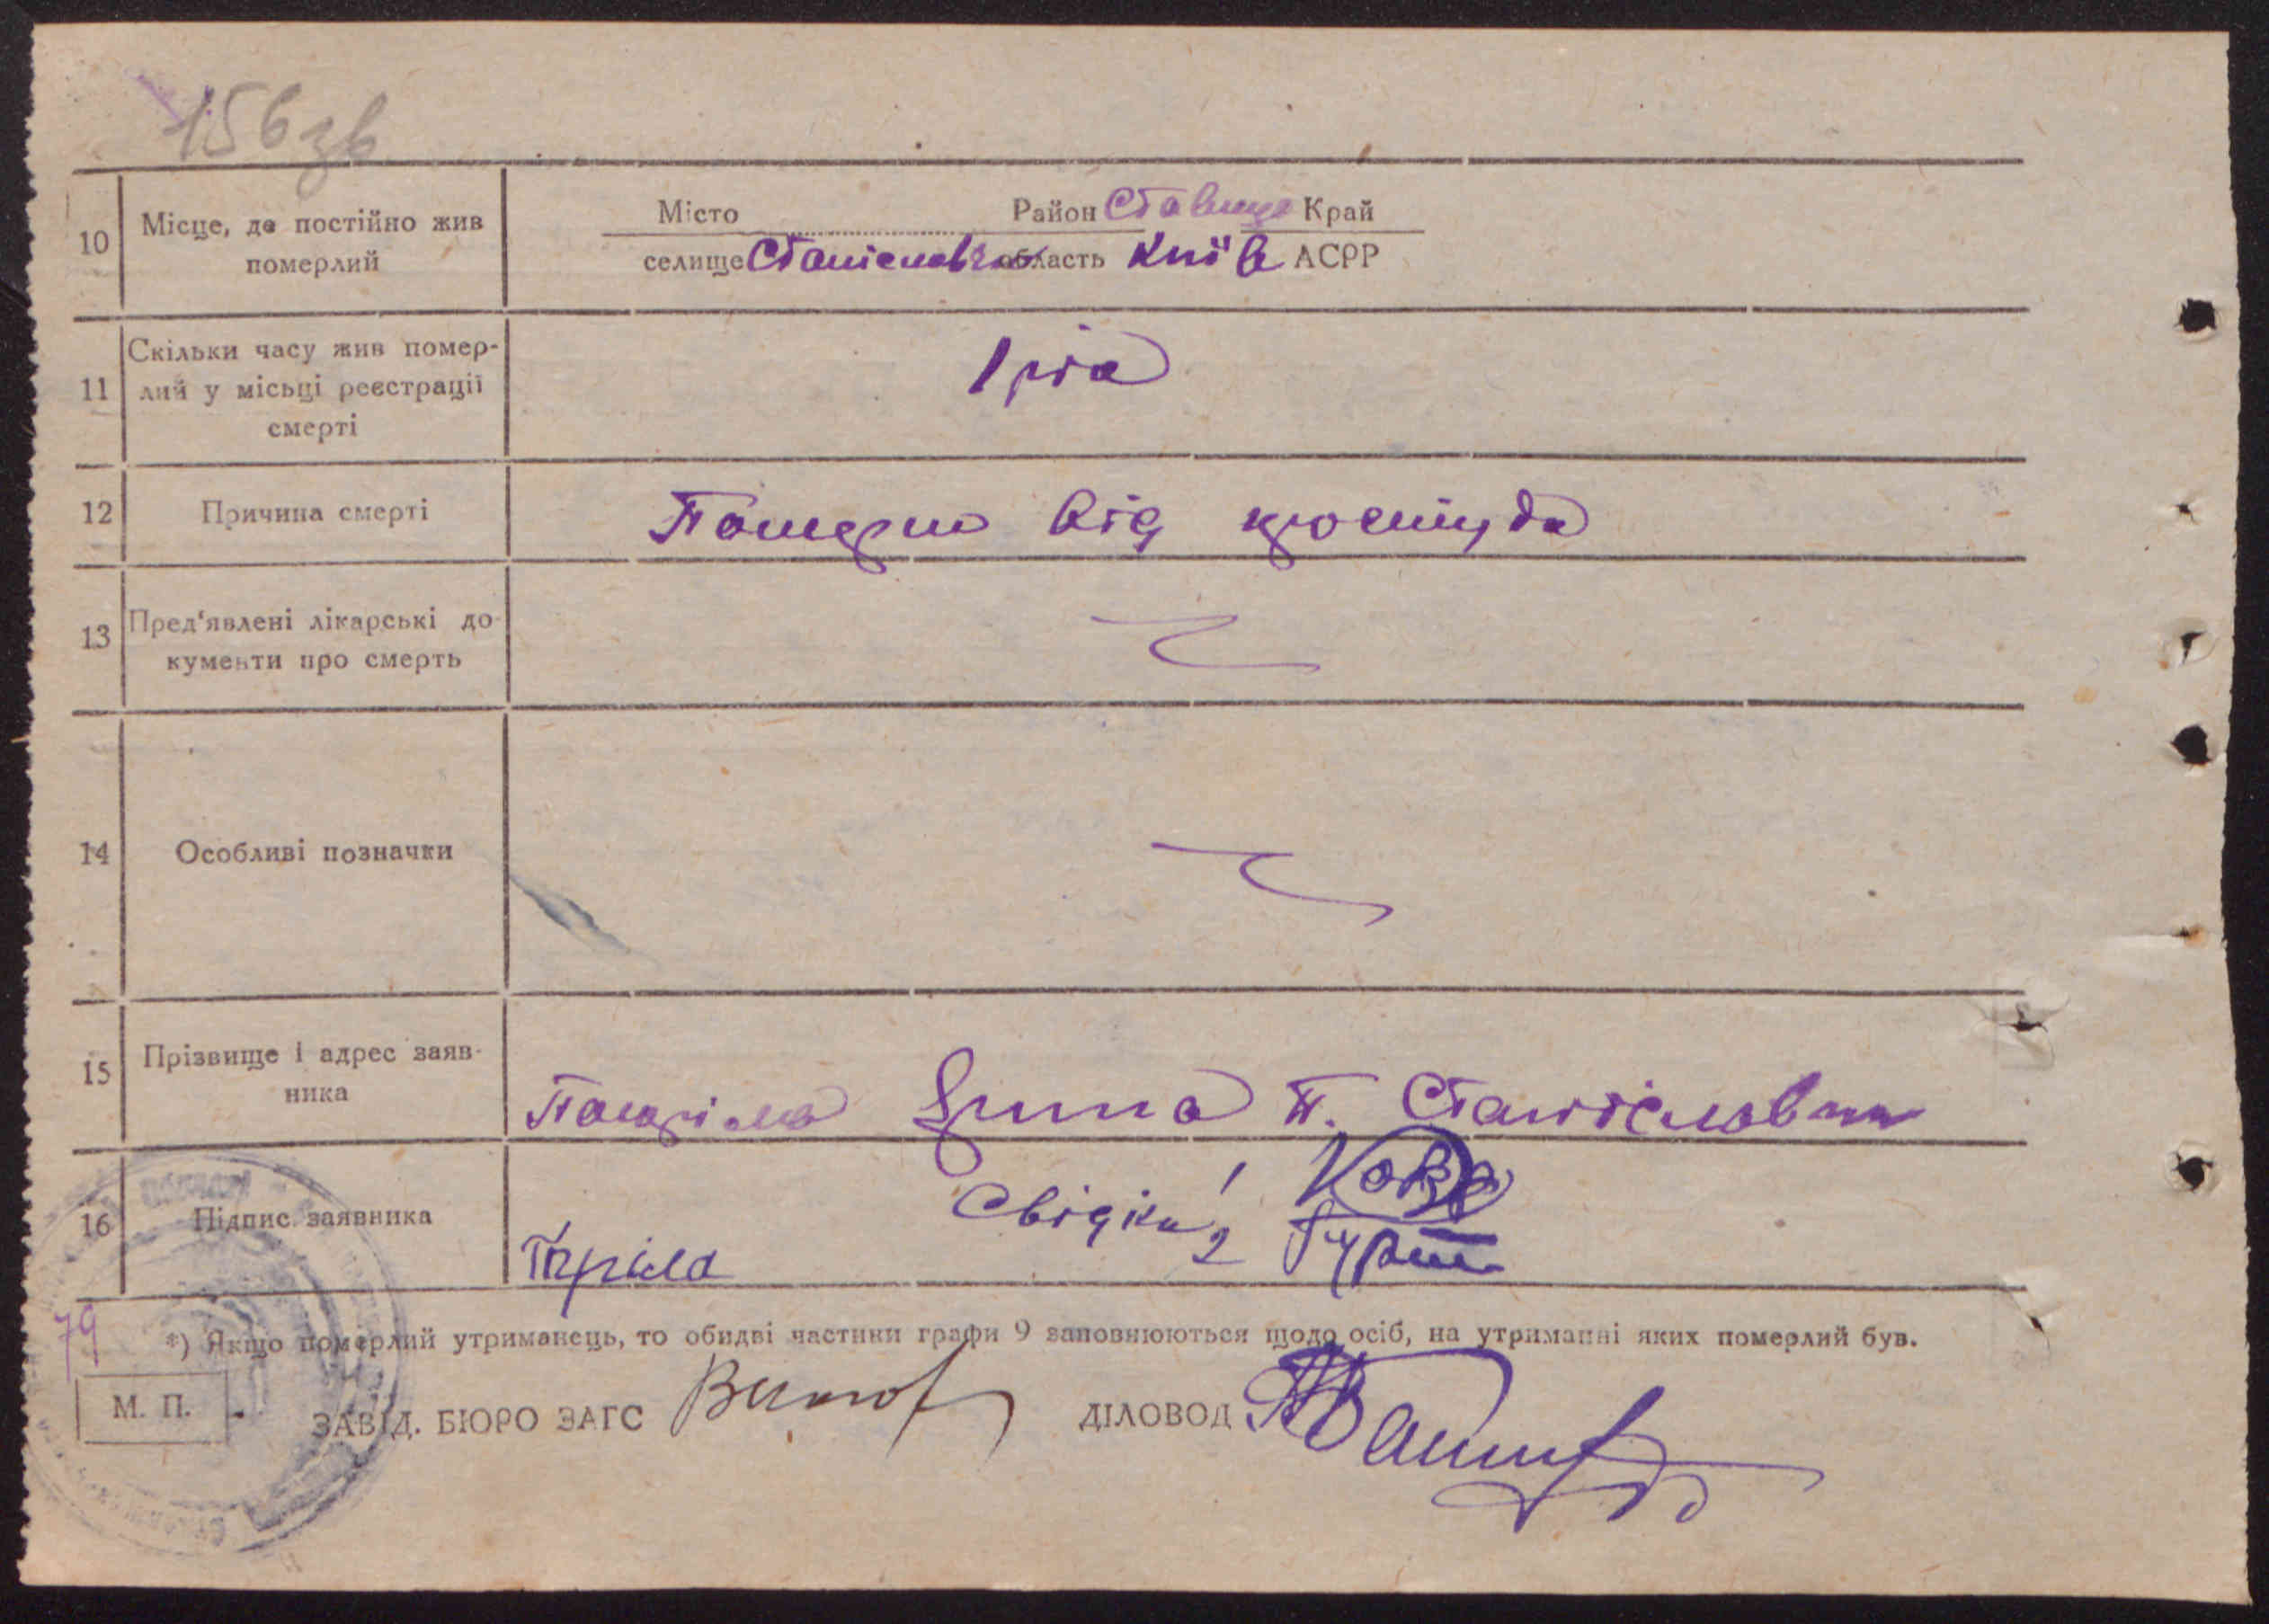 156 зв
Місто Район Ставище Край
10 Місце, де постійно жив померлий
селище Станіславка область Київ АСРР
11 Скільки часу жив помер-
лий у місьці реєстрації
смерті
1 рік
12 Причина смерті
Померло від простуда
13 Пред'явлені лікарські до-
кументи про смерть
14 Особливі позначки
15 Прізвище і адрес заяв-
ника
Ярина П. Станіславка
16 Підпис заявника
Свідки 1
2
79
*) Якщо померлий утриманець, то обидві частини графи 9 заповнюються щодо осіб, на утриманні яких померлий був.
М. П.
ЗАВІД. БЮРО ЗАГС
ДІЛОВОД